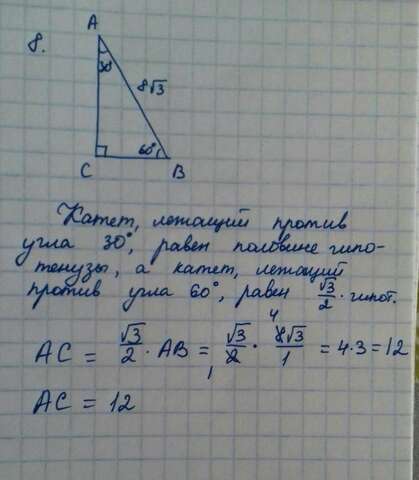 8.
A
30°
8√3
60°
C
B
Катет, лежащий против
угла 30°, равен половине гипо-
тенузы, а катет, лежащий
против угла 60°, равен √3/2 · гипот.
AC = √3/2 · AB = √3/2 · 8√3/1 = 4·3 = 12
1 4
AC = 12